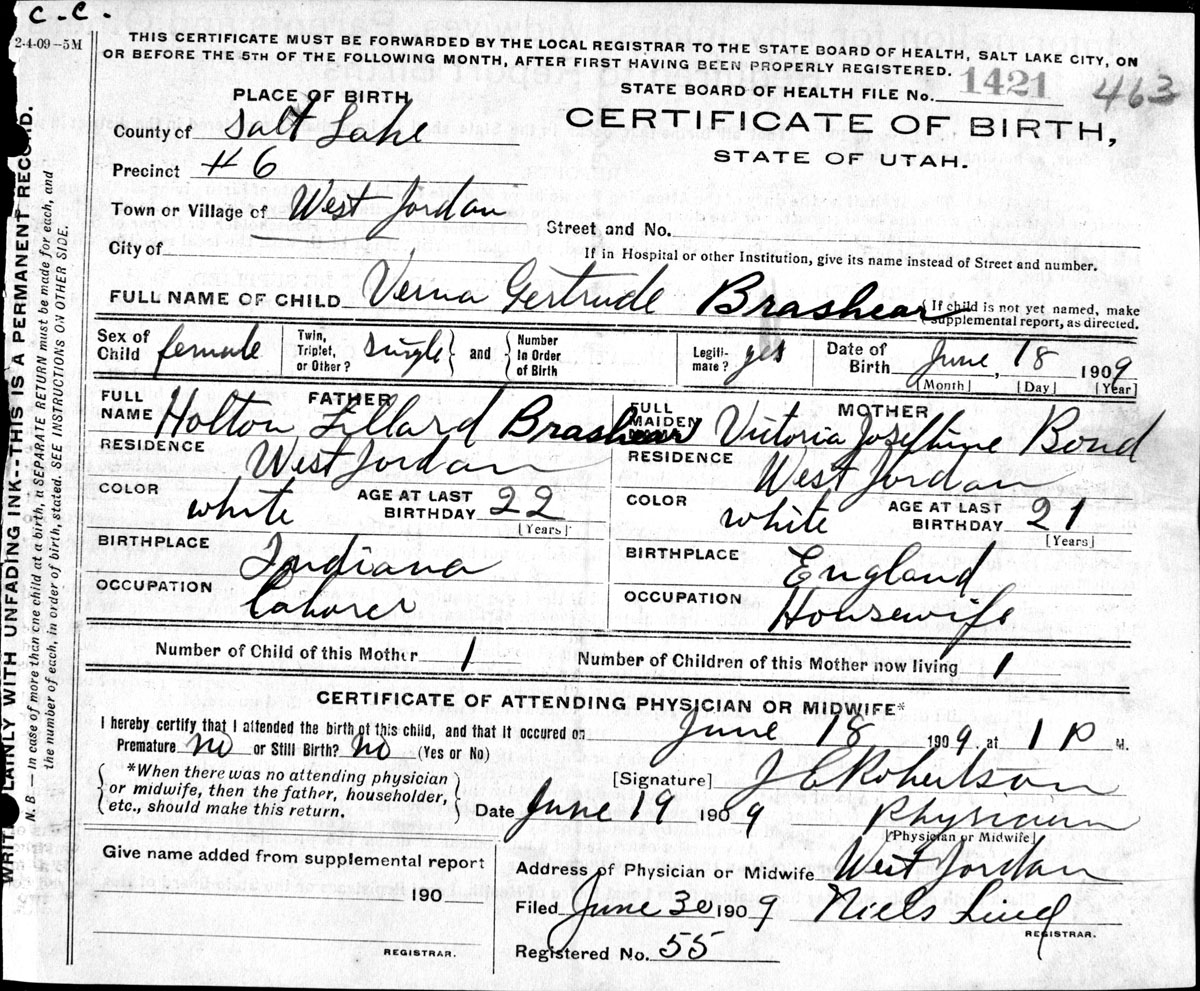 C.-C.
2-4-09—5M
THIS CERTIFICATE MUST BE FORWARDED BY THE LOCAL REGISTRAR TO THE STATE BOARD OF HEALTH, SALT LAKE CITY, ON
OR BEFORE THE 5TH OF THE FOLLOWING MONTH, AFTER FIRST HAVING BEEN PROPERLY REGISTERED.
STATE BOARD OF HEALTH FILE No. 1421 463
PLACE OF BIRTH
CERTIFICATE OF BIRTH,
STATE OF UTAH.
County of Salt Lake
Precinct #6
Town or Village of West Jordan
Street and No.
City of
If in Hospital or other Institution, give its name instead of Street and number.
FULL NAME OF CHILD Verna Gertrude Brashear {If child is not yet named, make
supplemental report, as directed.
Sex of Child female Twin, Triplet, or Other? single } and { Number In Order of Birth Legiti-mate? yes Date of Birth June, 18 1909
[Month] [Day] [Year]
FATHER
FULL NAME Holton Fillard Brashear
RESIDENCE West Jordan
COLOR white AGE AT LAST BIRTHDAY 22
[Years]
BIRTHPLACE Indiana
OCCUPATION Laborer
MOTHER
FULL MAIDEN NAME Victoria Josephine Bond
RESIDENCE West Jordan
COLOR white AGE AT LAST BIRTHDAY 21
[Years]
BIRTHPLACE England
OCCUPATION Housewife
Number of Child of this Mother 1 Number of Children of this Mother now living 1
CERTIFICATE OF ATTENDING PHYSICIAN OR MIDWIFE*
I hereby certify that I attended the birth of this child, and that it occured on June 18 1909. at 1 P M.
Premature no or Still Birth? no (Yes or No)
{*When there was no attending physician
or midwife, then the father, householder,
etc., should make this return.}
[Signature] J E Robertson
Date June 19 1909 Physician
[Physician or Midwife]
Give name added from supplemental report
190
REGISTRAR.
Address of Physician or Midwife West Jordan
Filed June 30 1909 Niels Lind
REGISTRAR.
Registered No. 55
LAINLY WITH UNFADING INK--THIS IS A PERMANENT RECORD.
N. B.—In case of more than one child at a birth, a SEPARATE RETURN must be made for each, and
the number of each, in order of birth, stated. SEE INSTRUCTIONS ON OTHER SIDE.